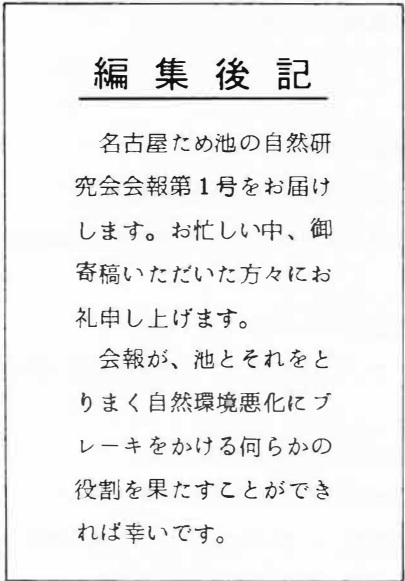 編集後記
名古屋ため池の自然研
究会会報第1号をお届け
します。お忙しい中、御
寄稿いただいた方々にお
礼申し上げます。
会報が、池とそれをと
りまく自然環境悪化にブ
レーキをかける何らかの
役割を果たすことができ
れば幸いです。